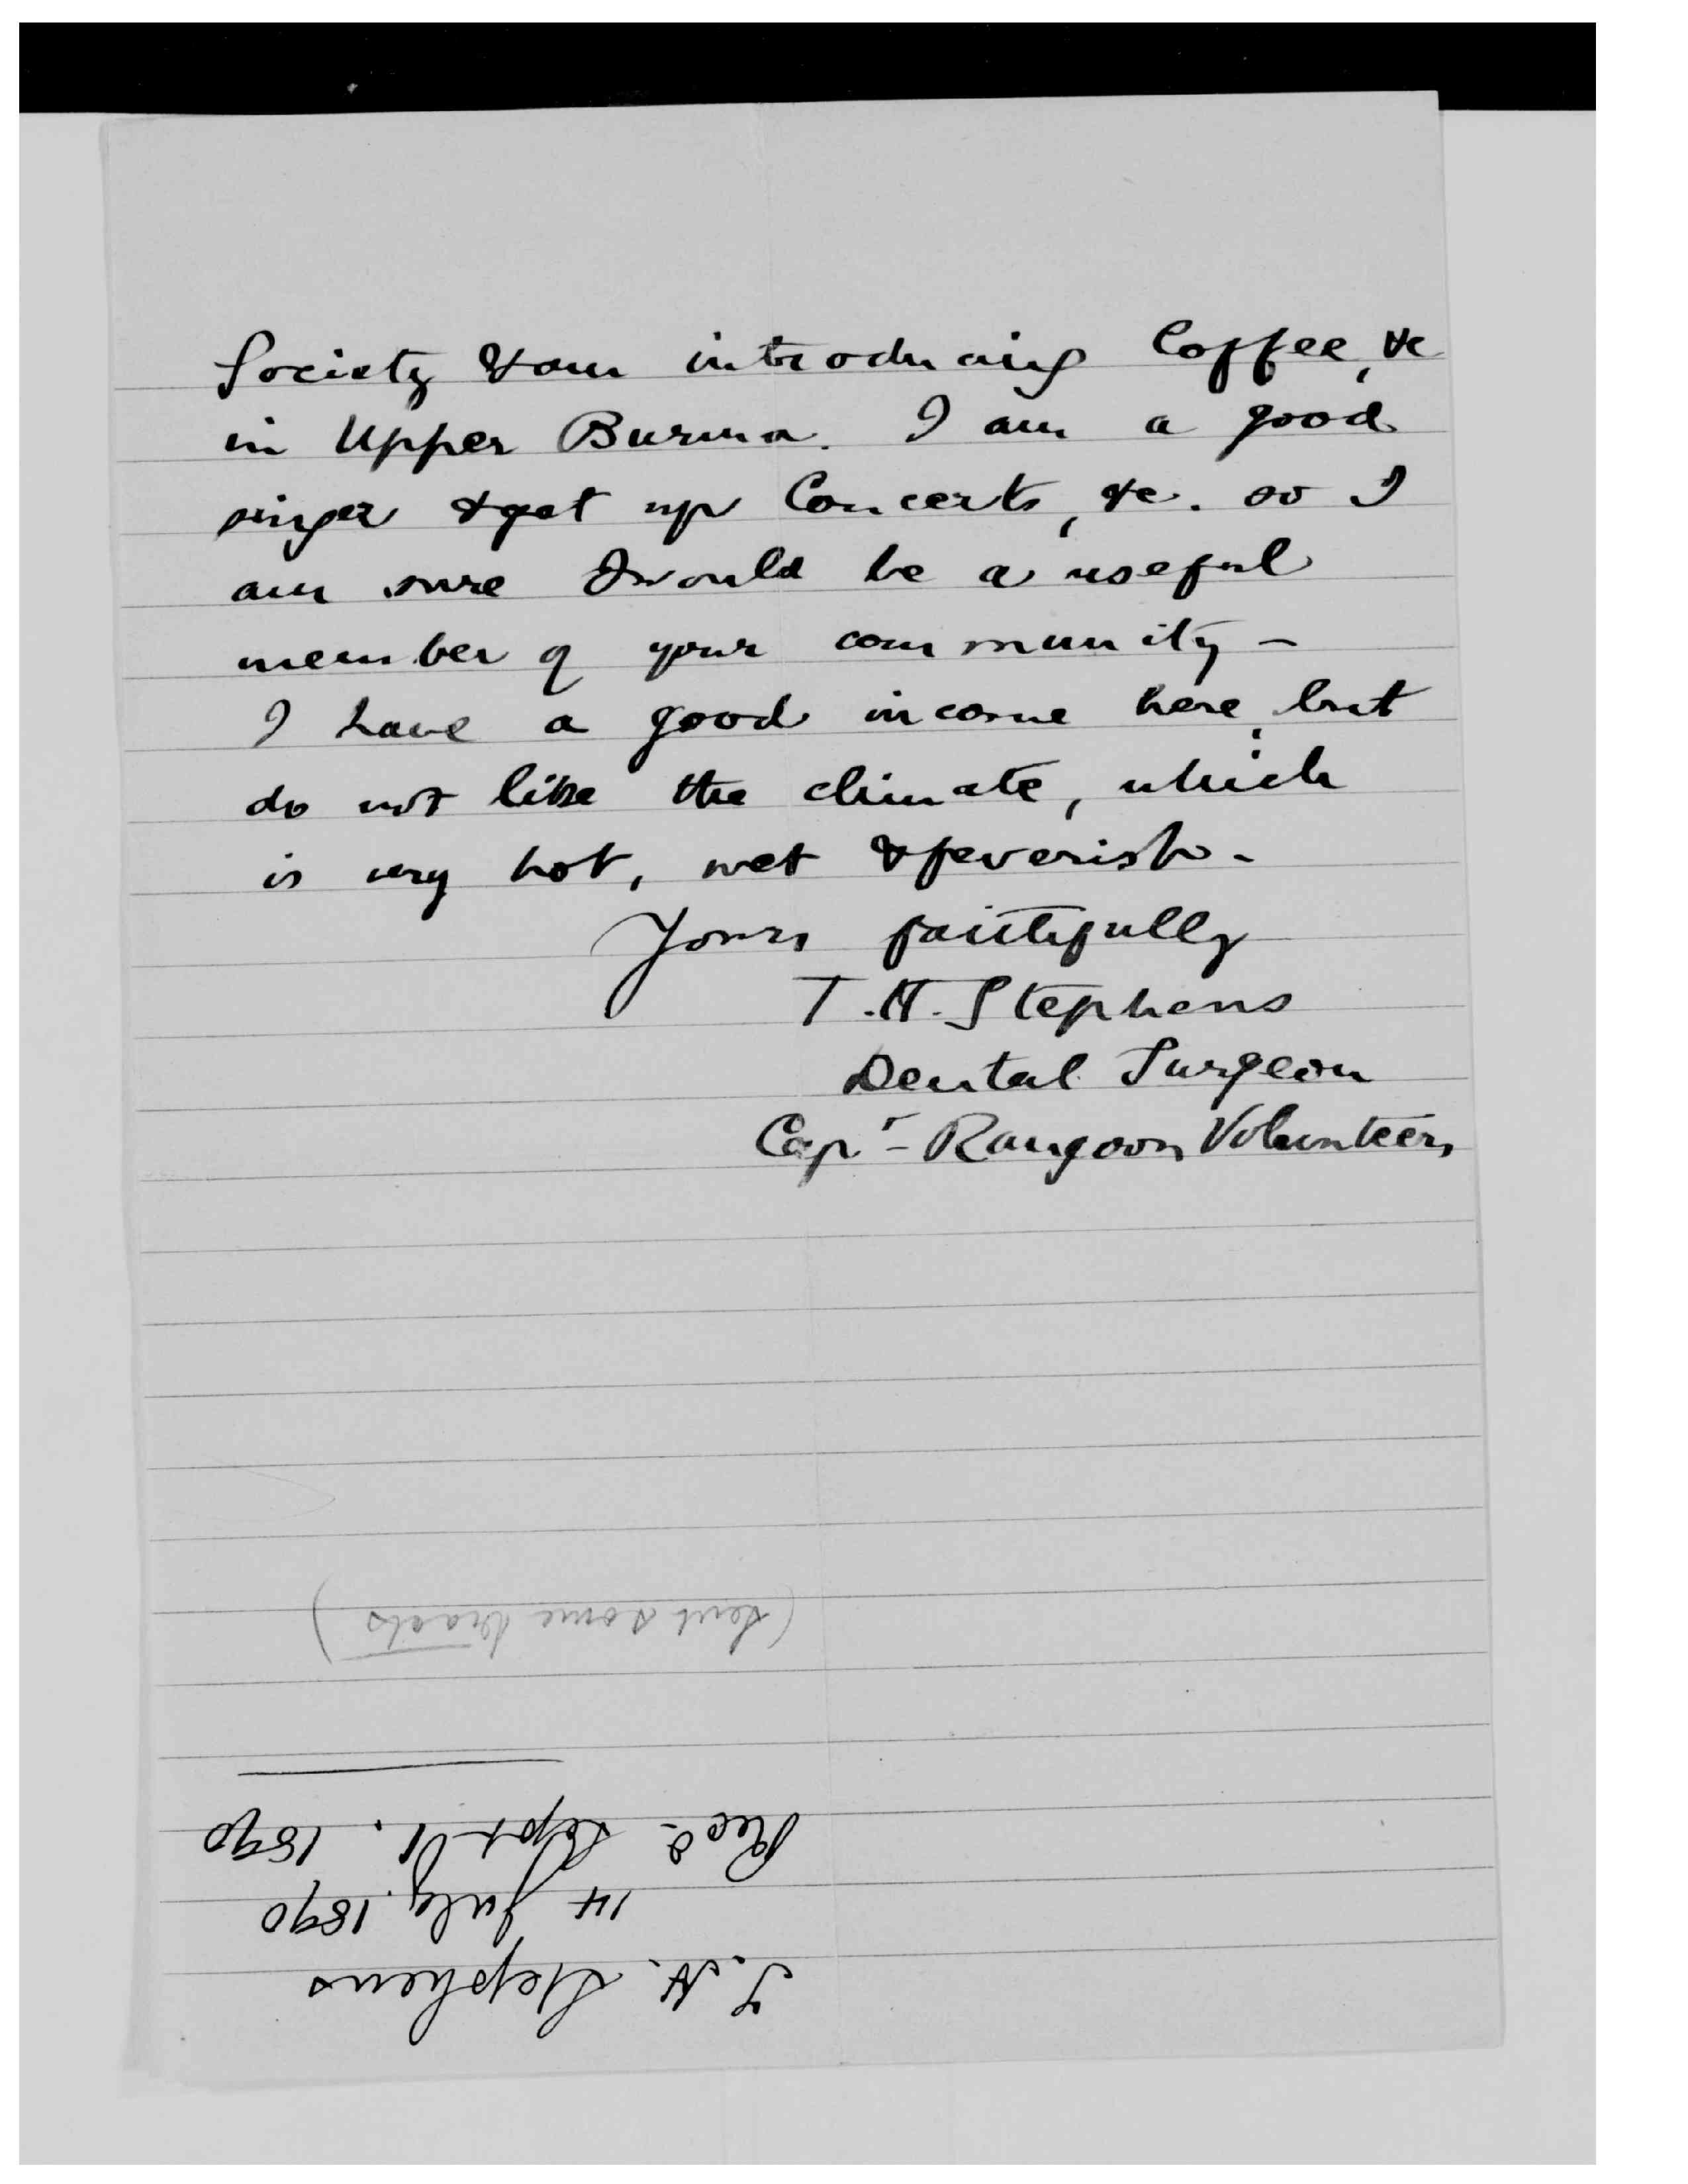 Society & am introducing Coffee, &c
in Upper Burma. I am a good
singer & get up Concerts, &c. so I
am sure I would be a useful
member of your community –
I have a good income here, but
do not like the climate, which
is very hot, wet & feverish –
Yours faithfully
T. H. Stephens
Dental Surgeon
Capt – Rangoon Volunteers
T. H. Stephens
14 July. 1890
Recd. Sept 1. 1890
(sent some tracts)